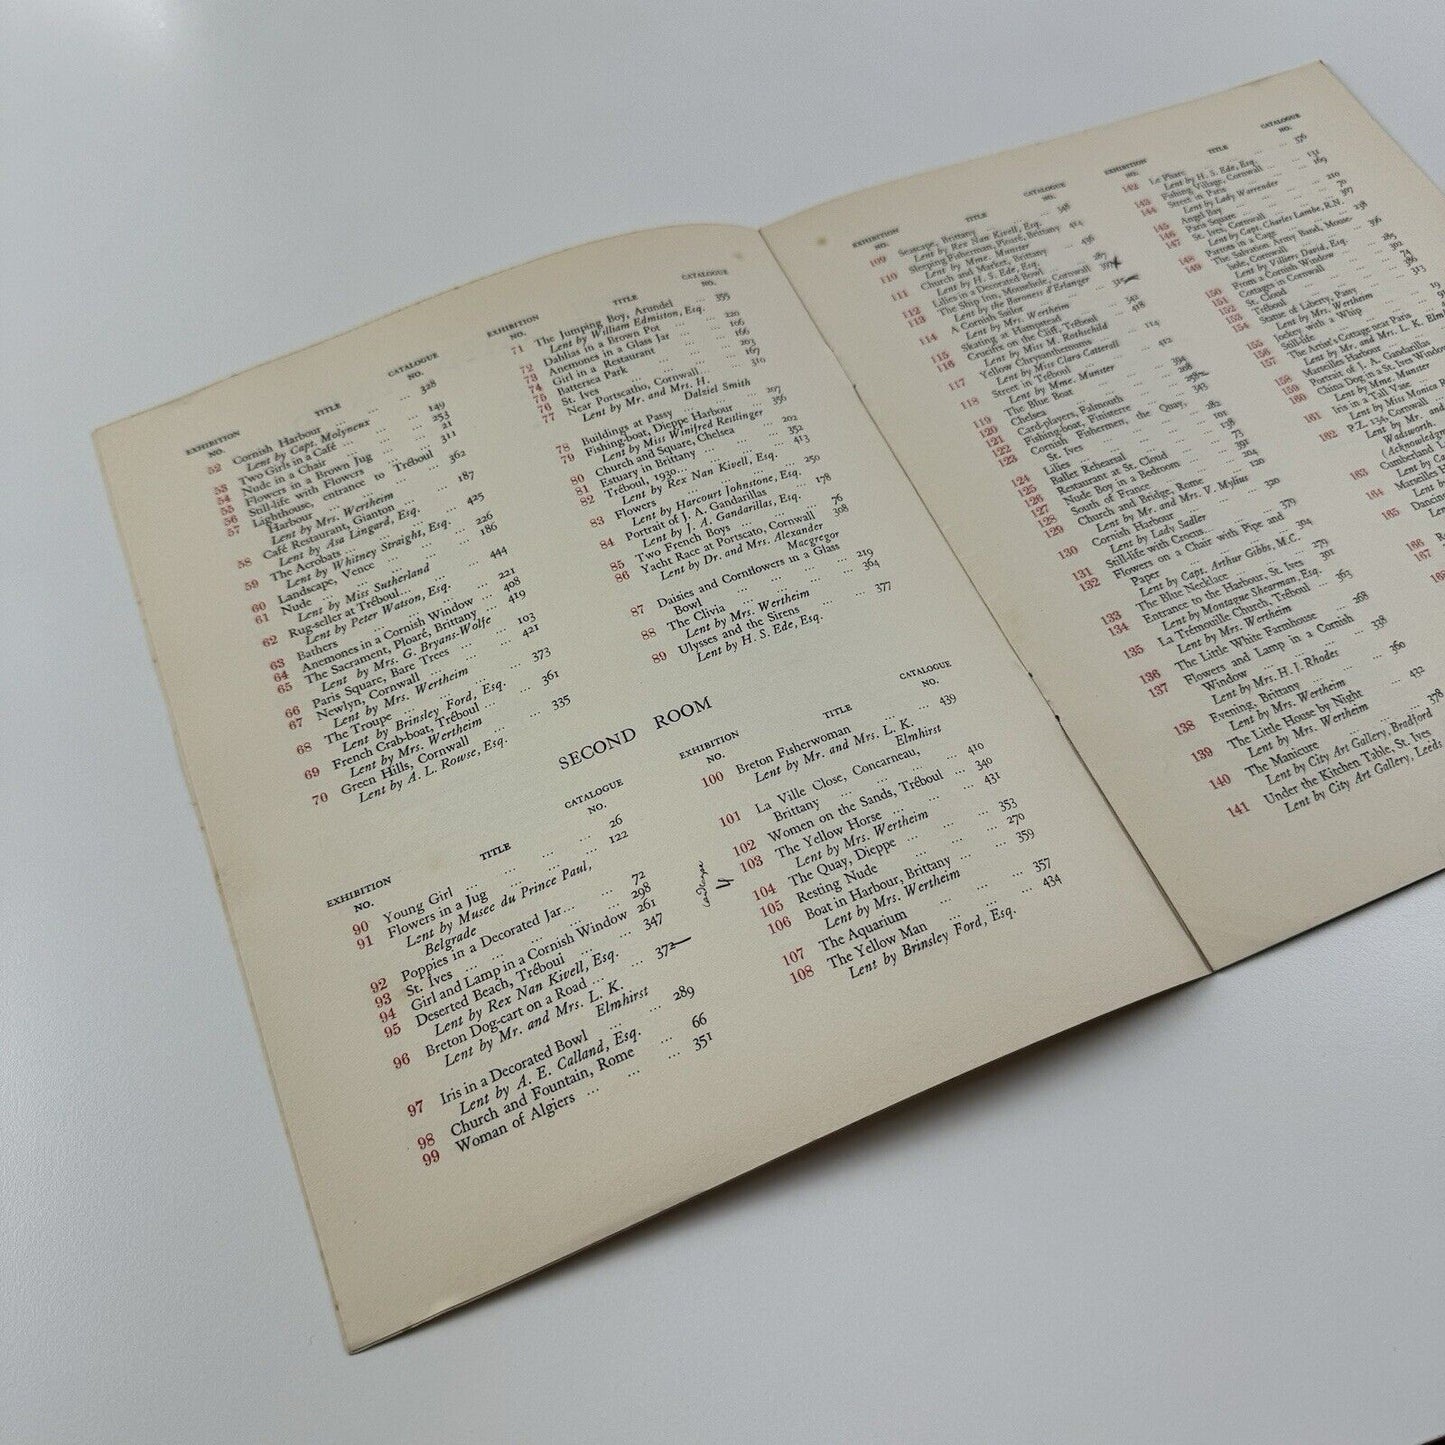 EXHIBITION NO. TITLE CATALOGUE NO.
52 Cornish Harbour ... ... 328
Lent by Capt. Molyneux
53 Two Girls in a Café ... 149
54 Nude in a Chair ... ... 253
55 Flowers in a Brown Jug ... 21
56 Still-life with Flowers ... 311
57 Lighthouse, entrance to Tréboul
Harbour ... ... ... 362
Lent by Mrs. Wertheim
58 Café Restaurant, Gianton ... 187
Lent by Asa Lingard, Esq.
59 The Acrobats ... ... 425
Lent by Whitney Straight, Esq.
60 Landscape, Vence ... ... 226
61 Nude ... ... ... 186
Lent by Miss Sutherland
62 Rug-seller at Tréboul ... 444
Lent by Peter Watson, Esq.
63 Bathers ... ... ... 221
64 Anemones in a Cornish Window ... 408
65 The Sacrament, Ploaré, Brittany ... 419
Lent by Mrs. G. Bryans-Wolfe
66 Paris Square, Bare Trees ... 103
67 Newlyn, Cornwall ... ... 421
Lent by Mrs. Wertheim
68 The Troupe ... ... ... 373
Lent by Brinsley Ford, Esq.
69 French Crab-boat, Tréboul ... 361
Lent by Mrs. Wertheim
70 Green Hills, Cornwall ... 335
Lent by A. L. Rowse, Esq.
EXHIBITION NO. TITLE CATALOGUE NO.
71 The Jumping Boy, Arundel ... 355
Lent by William Edmiston, Esq.
72 Dahlias in a Brown Pot ... 220
73 Anemones in a Glass Jar ... 106
74 Girl in a Restaurant ... 166
75 Battersea Park ... ... 203
76 St. Ives ... ... ... 167
77 Near Portscatho, Cornwall ... 310
Lent by Mr. and Mrs. H.
Dalziel Smith
78 Buildings at Passy ... ... 207
79 Fishing-boat, Dieppe Harbour ... 356
Lent by Miss Winifred Reitlinger
80 Church and Square, Chelsea ... 202
81 Estuary in Brittany ... ... 352
82 Tréboul, 1930 ... ... 413
Lent by Rex Nan Kivell, Esq.
83 Flowers ... ... ... 250
Lent by Harcourt Johnstone, Esq.
84 Portrait of J. A. Gandarillas ... 178
Lent by J. A. Gandarillas, Esq.
85 Two French Boys ... ... 76
86 Yacht Race at Portscato, Cornwall 308
Lent by Dr. and Mrs. Alexander
Macgregor
87 Daisies and Cornflowers in a Glass
Bowl ... ... ... 219
Lent by Mrs. Wertheim
88 The Clivia ... ... ... 364
Lent by Mrs. Wertheim
89 Ulysses and the Sirens ... 377
Lent by H. S. Ede, Esq.
SECOND ROOM
EXHIBITION NO. TITLE CATALOGUE NO.
90 Young Girl ... ... ... 26
91 Flowers in a Jug ... ... 122
Lent by Musee du Prince Paul,
Belgrade
92 Poppies in a Decorated Jar ... 72
93 St. Ives ... ... ... 298
94 Girl and Lamp in a Cornish Window 261
95 Deserted Beach, Tréboul ... 347
Lent by Rex Nan Kivell, Esq.
96 Breton Dog-cart on a Road ... 372
Lent by Mr. and Mrs. L. K.
Elmhirst
97 Iris in a Decorated Bowl ... 289
Lent by A. E. Calland, Esq.
98 Church and Fountain, Rome ... 66
99 Woman of Algiers ... ... 351
EXHIBITION NO. TITLE CATALOGUE NO.
100 Breton Fisherwoman ... ... 439
Lent by Mr. and Mrs. L. K.
Elmhirst
101 La Ville Close, Concarneau,
Brittany ... ... ... 410
102 Women on the Sands, Tréboul ... 340
103 The Yellow Horse ... ... 431
Lent by Mrs. Wertheim
4
104 The Quay, Dieppe ... ... 353
105 Resting Nude ... ... 270
106 Boat in Harbour, Brittany ... 359
Lent by Mrs. Wertheim
107 The Aquarium ... ... 357
108 The Yellow Man ... ... 434
Lent by Brinsley Ford, Esq.
EXHIBITION NO. TITLE CATALOGUE NO.
109 Seascape, Brittany ... ... 348
Lent by Rex Nan Kivell, Esq.
110 Sleeping Fisherman, Ploaré, Brittany 414
Lent by Mme. Munster
111 Church and Market, Brittany ... 436
Lent by H. S. Ede, Esq.
112 Lilies in a Decorated Bowl ... 287
113 The Ship Inn, Mousehole, Cornwall
Lent by the Baroness d'Erlanger
114 A Cornish Sailor ... ...
Lent by Mrs. Wertheim
115 Skating at Hampstead ... 342
116 Crucifix on the Cliff, Tréboul ... 418
Lent by Miss M. Rothschild
117 Yellow Chrysanthemums ... 114
Lent by Miss Clara Catterall
118 Street in Tréboul ... ... 412
Lent by Mme. Munster
119 The Blue Boat ... ... 394
120 Chelsea ... ... ... 208
121 Card-players, Falmouth ...
122 Fishing-boat, Finisterre ... 343
123 Cornish Fishermen, the Quay,
St. Ives ... ... ... 282
124 Lilies ... ... ... 101
125 Ballet Rehearsal ... ... 138
126 Restaurant at St. Cloud ... 73
127 Nude Boy in a Bedroom ... 391
128 South of France ... ... 120
129 Church and Bridge, Rome ...
Lent by Mr. and Mrs. V. Mylius
130 Cornish Harbour ... ... 320
Lent by Lady Sadler
131 Still-life with Crocus ... 379
132 Flowers on a Chair with Pipe and
Paper ... ... ... 324
Lent by Capt. Arthur Gibbs, M.C.
133 The Blue Necklace ... ... 279
134 Entrance to the Harbour, St. Ives 301
Lent by Montague Shearman, Esq.
135 La Trémouille Church, Tréboul ... 363
Lent by Mrs. Wertheim
136 The Little White Farmhouse ... 268
137 Flowers and Lamp in a Cornish
Window ... ... ... 338
Lent by Mrs. H. J. Rhodes
138 Evening, Brittany ... ... 360
Lent by Mrs. Wertheim
139 The Little House by Night ... 432
Lent by Mrs. Wertheim
140 The Manicure ... ... 378
Lent by City Art Gallery, Bradford
141 Under the Kitchen Table, St. Ives
Lent by City Art Gallery, Leeds
EXHIBITION NO. TITLE CATALOGUE NO.
142 Le Phare ... ... ... 376
Lent by H. S. Ede, Esq.
143 Fishing Village, Cornwall ... 131
144 Street in Paris ... ... 169
Lent by Lady Warrender
145 Angel Bay ... ... ... 210
146 Paris Square ... ... 70
147 St. Ives, Cornwall ... ... 307
Lent by Capt. Charles Lambe, R.N.
148 Parrots in a Cage ... ... 238
149 The Salvation Army Band, Mouse-
hole, Cornwall ... ... 396
Lent by Villiers David, Esq.
150 From a Cornish Window ... 285
151 Cottages in Cornwall ... 302
152 St. Cloud ... ... ... 74
153 Statue of Liberty, Passy ... 286
Lent by Mrs. Wertheim
154 Jockey with a Whip ... 313
155 Still-life
156 The Artist's Cottage near Paris
Lent by Mr. and Mrs. L. K.
157 Marseilles Harbour
158 Portrait of J. A. Gandarillas
159 China Dog in a St. Ives Window
Lent by Mme. Munster
160 Iris in a Tall Vase
Lent by Miss Monica
161 P.Z. 134, Cornwall
Lent by Mr. and
Wadsworth.
162
163 Cumberland
164 Marseilles
165 Dancing
166
167